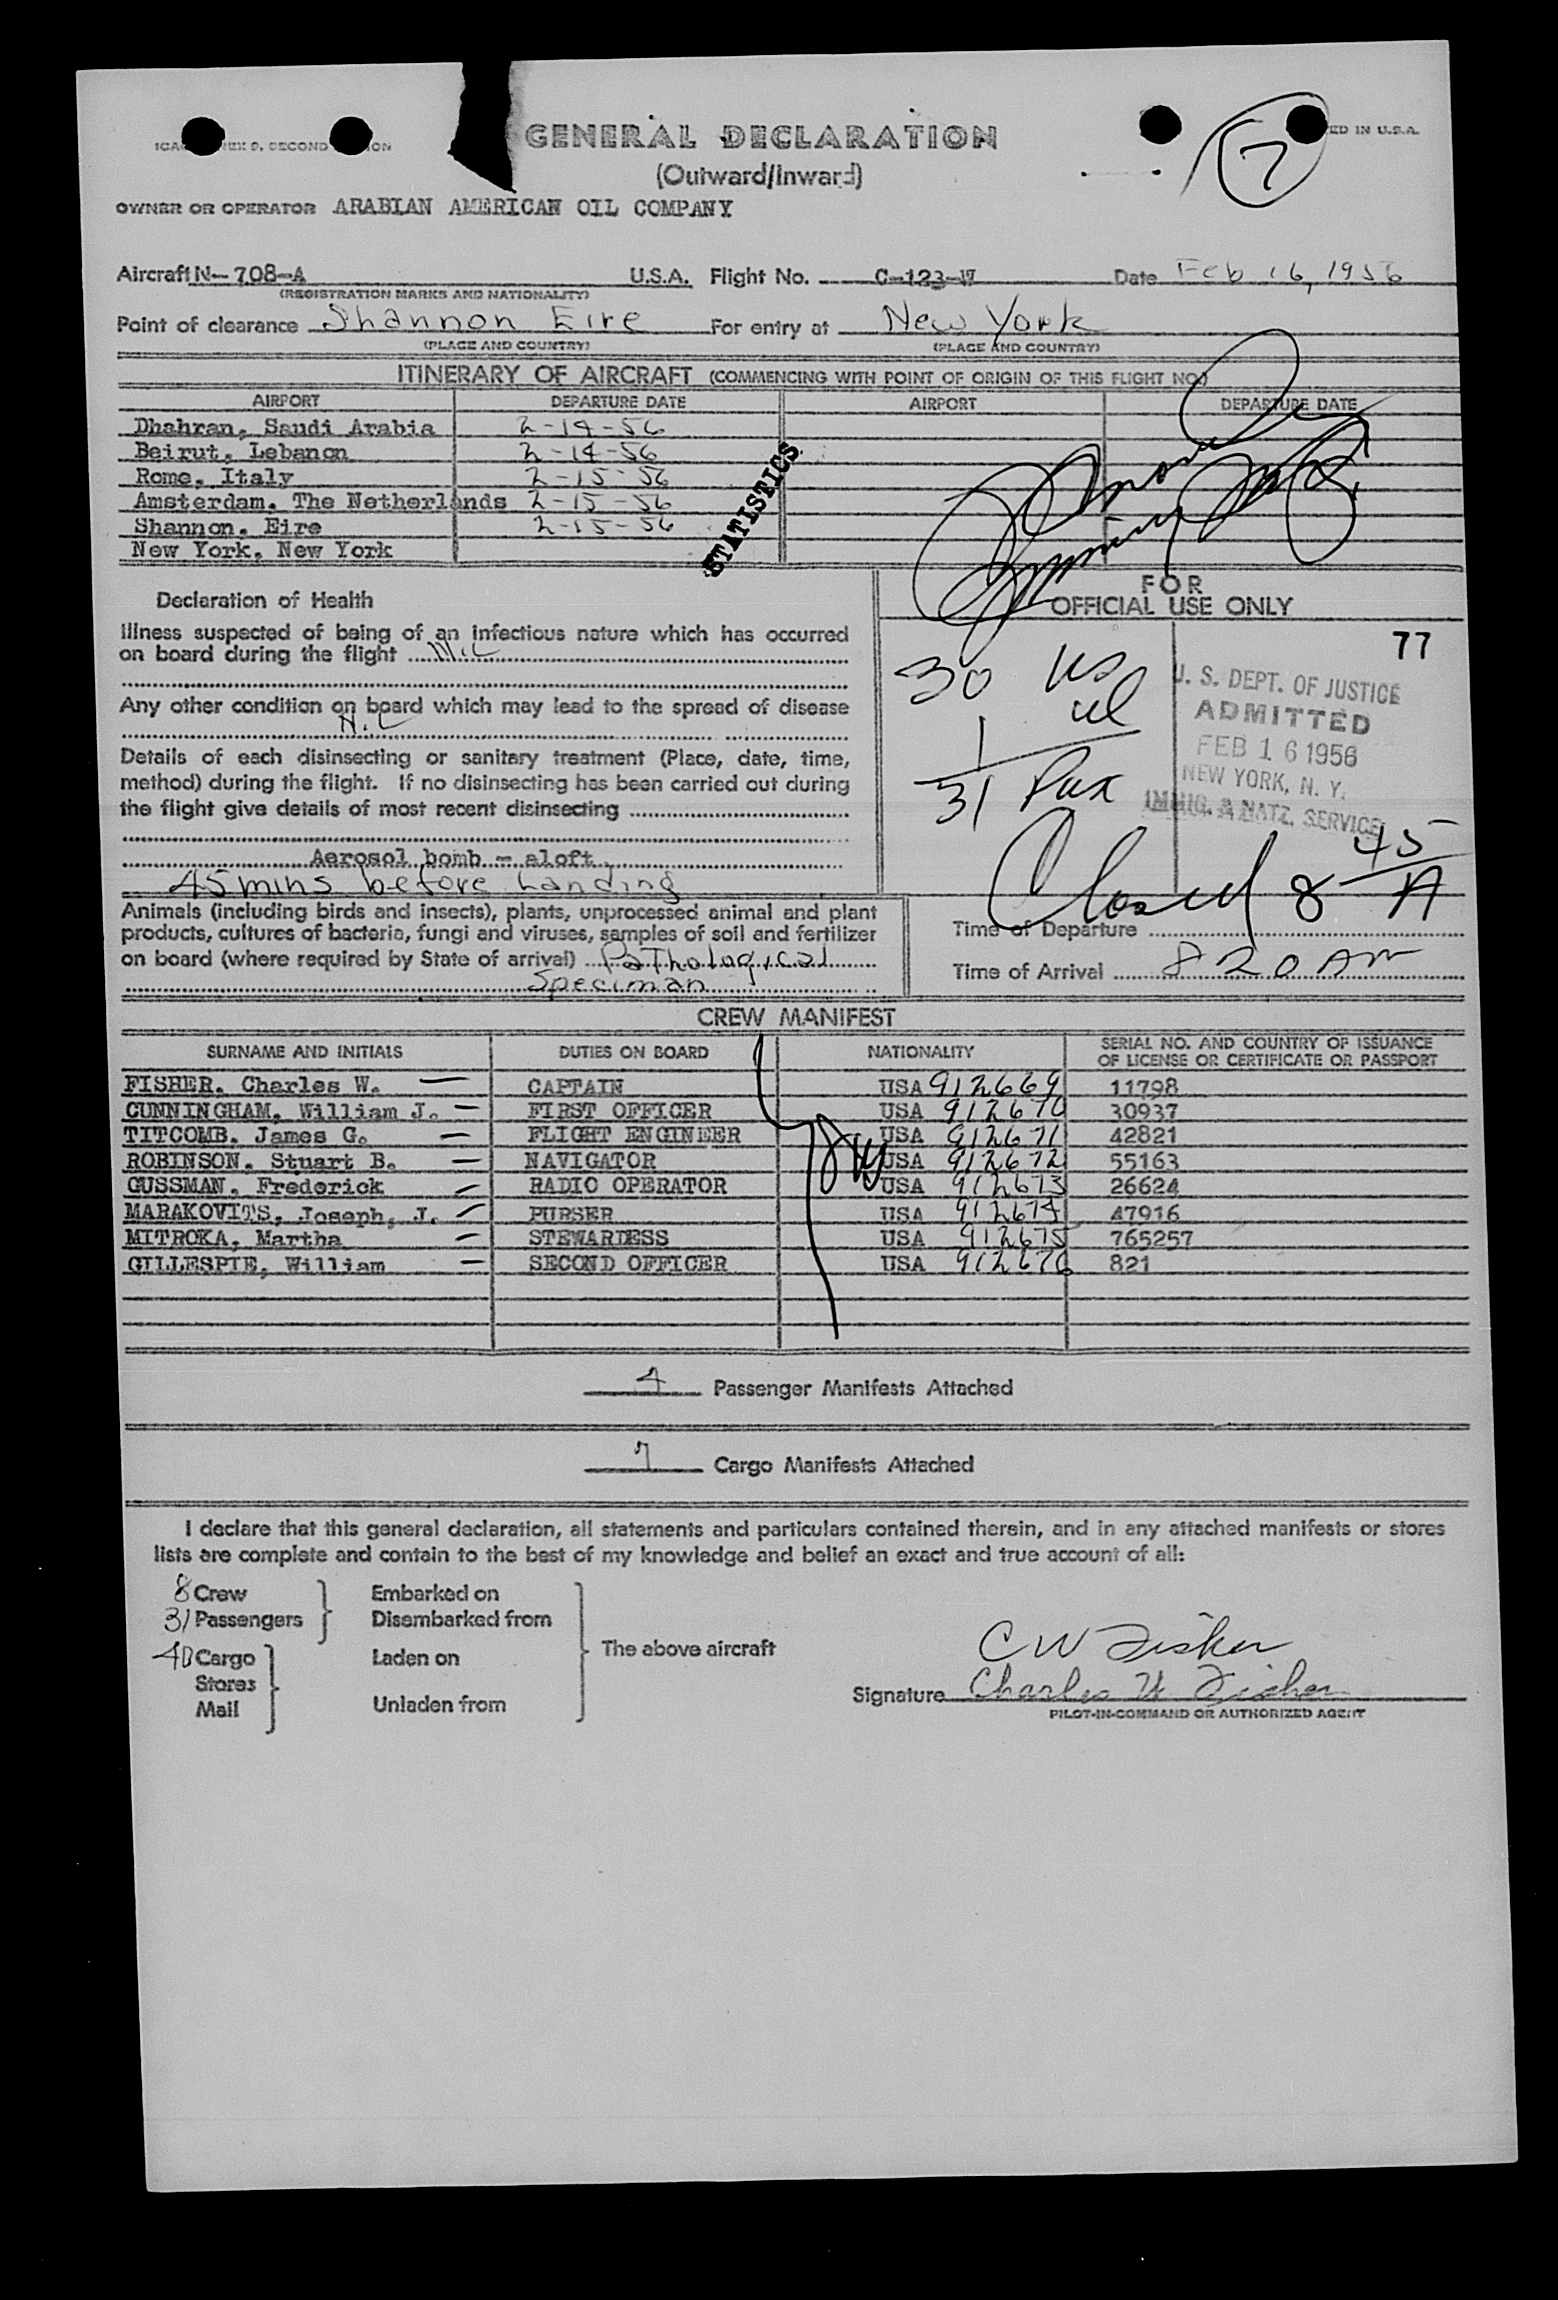 GENERAL DECLARATION
(Outward/Inward)
7
ED IN U.S.A.
OWNER OR OPERATOR ARABIAN AMERICAN OIL COMPANY
Aircraft N-708-A U.S.A. Flight No. C-123-W Date Feb 16, 1956
(REGISTRATION MARKS AND NATIONALITY)
Point of clearance Shannon Eire For entry at New York
(PLACE AND COUNTRY) (PLACE AND COUNTRY)
ITINERARY OF AIRCRAFT (COMMENCING WITH POINT OF ORIGIN OF THIS FLIGHT NO.)
AIRPORT DEPARTURE DATE AIRPORT DEPARTURE DATE
Dhahran, Saudi Arabia 2-14-56
Beirut, Lebanon 2-14-56
Rome, Italy 2-15-56
Amsterdam, The Netherlands 2-15-56
Shannon, Eire 2-15-56
New York, New York
STATISTICS
Declaration of Health
Illness suspected of being of an infectious nature which has occurred
on board during the flight Nil
Any other condition on board which may lead to the spread of disease
Nil
Details of each disinsecting or sanitary treatment (Place, date, time,
method) during the flight. If no disinsecting has been carried out during
the flight give details of most recent disinsecting
Aerosol bomb - aloft
45 mins before Landing
FOR
OFFICIAL USE ONLY
77
30 US
1 al
31 Pax
U. S. DEPT. OF JUSTICE
ADMITTED
FEB 16 1956
NEW YORK, N. Y.
IMMIG. & NATZ. SERVICE
Closed 8 45 A
Animals (including birds and insects), plants, unprocessed animal and plant
products, cultures of bacteria, fungi and viruses, samples of soil and fertilizer
on board (where required by State of arrival) Pathological
Speciman
Time of Departure
Time of Arrival 820 AM
CREW MANIFEST
SURNAME AND INITIALS DUTIES ON BOARD NATIONALITY SERIAL NO. AND COUNTRY OF ISSUANCE
OF LICENSE OR CERTIFICATE OR PASSPORT
FISHER, Charles W. — CAPTAIN USA 912669 11798
CUNNINGHAM, William J. — FIRST OFFICER USA 912670 30937
TITCOMB, James G. — FLIGHT ENGINEER USA 912671 42821
ROBINSON, Stuart B. — NAVIGATOR USA 912672 55163
GUSSMAN, Frederick — RADIO OPERATOR USA 912673 26624
MARAKOVITS, Joseph, J. — PURSER USA 912674 47916
MITROKA, Martha — STEWARDESS USA 912675 765257
GILLESPIE, William — SECOND OFFICER USA 912676 821
4 Passenger Manifests Attached
7 Cargo Manifests Attached
I declare that this general declaration, all statements and particulars contained therein, and in any attached manifests or stores
lists are complete and contain to the best of my knowledge and belief an exact and true account of all:
8 Crew Embarked on
31 Passengers Disembarked from
The above aircraft
40 Cargo Laden on
Stores
Mail Unladen from
C W Fisher
Signature Charles W Fisher
PILOT-IN-COMMAND OR AUTHORIZED AGENT